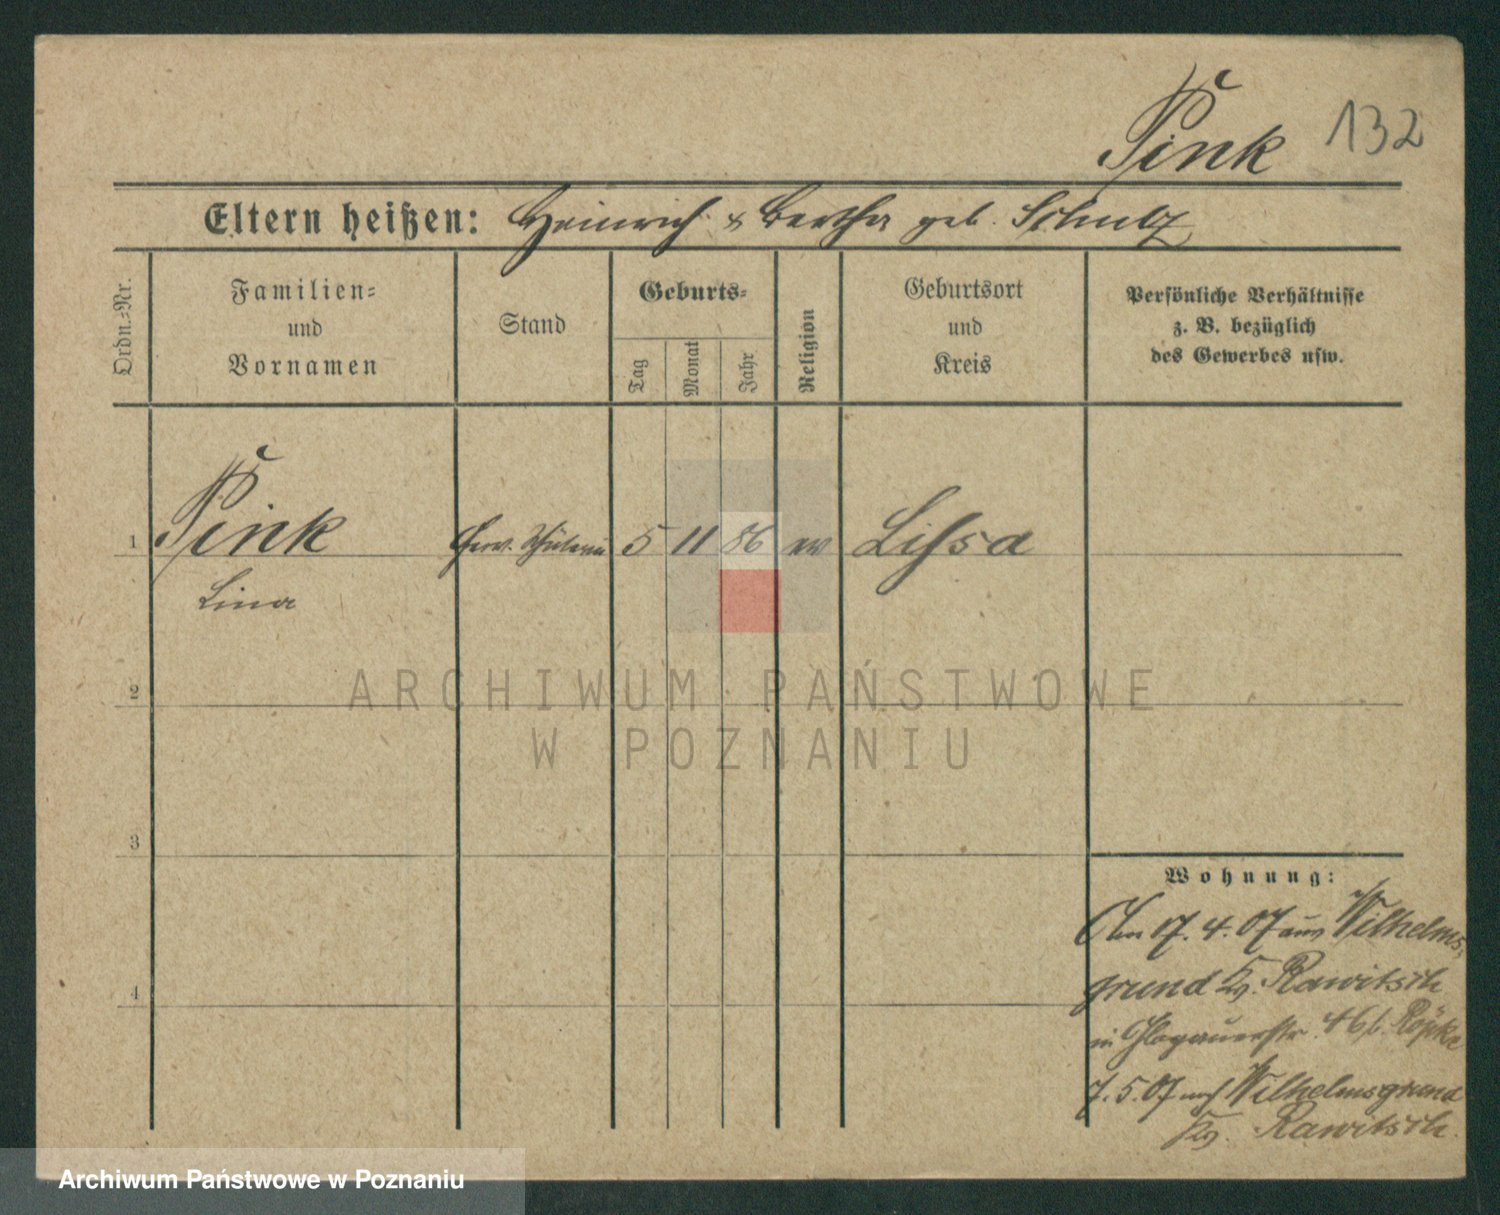 Pink 132
Eltern heißen: Heinrich & Bertha geb. Schulz
Ordn.-Nr.
Familien-
und
Vornamen
Stand
Geburts-
Tag
Monat
Jahr
Religion
Geburtsort
und
Kreis
Persönliche Verhältnisse
z. B. bezüglich
des Gewerbes usw.
1 Pink Schülerin 5 11 86 ev Lissa
Lina
2
3
4
Wohnung:
Am 17. 4. 07 aus Wilhelms-
grund Kr. Rawitsch
in Glogauerstr. 46 b. Röpke
7. 5. 07 nach Wilhelmsgrund
Kr. Rawitsch.
ARCHIWUM PAŃSTWOWE
W POZNANIU
Archiwum Państwowe w Poznaniu